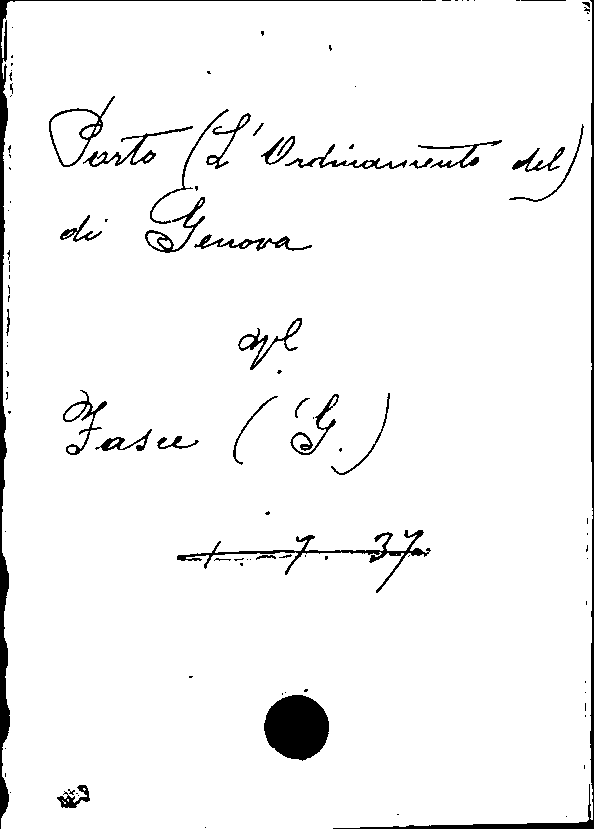 Porto (L'Ordinamento del)
di Genova
vpl
Fasce (G.)
1. 7. 37